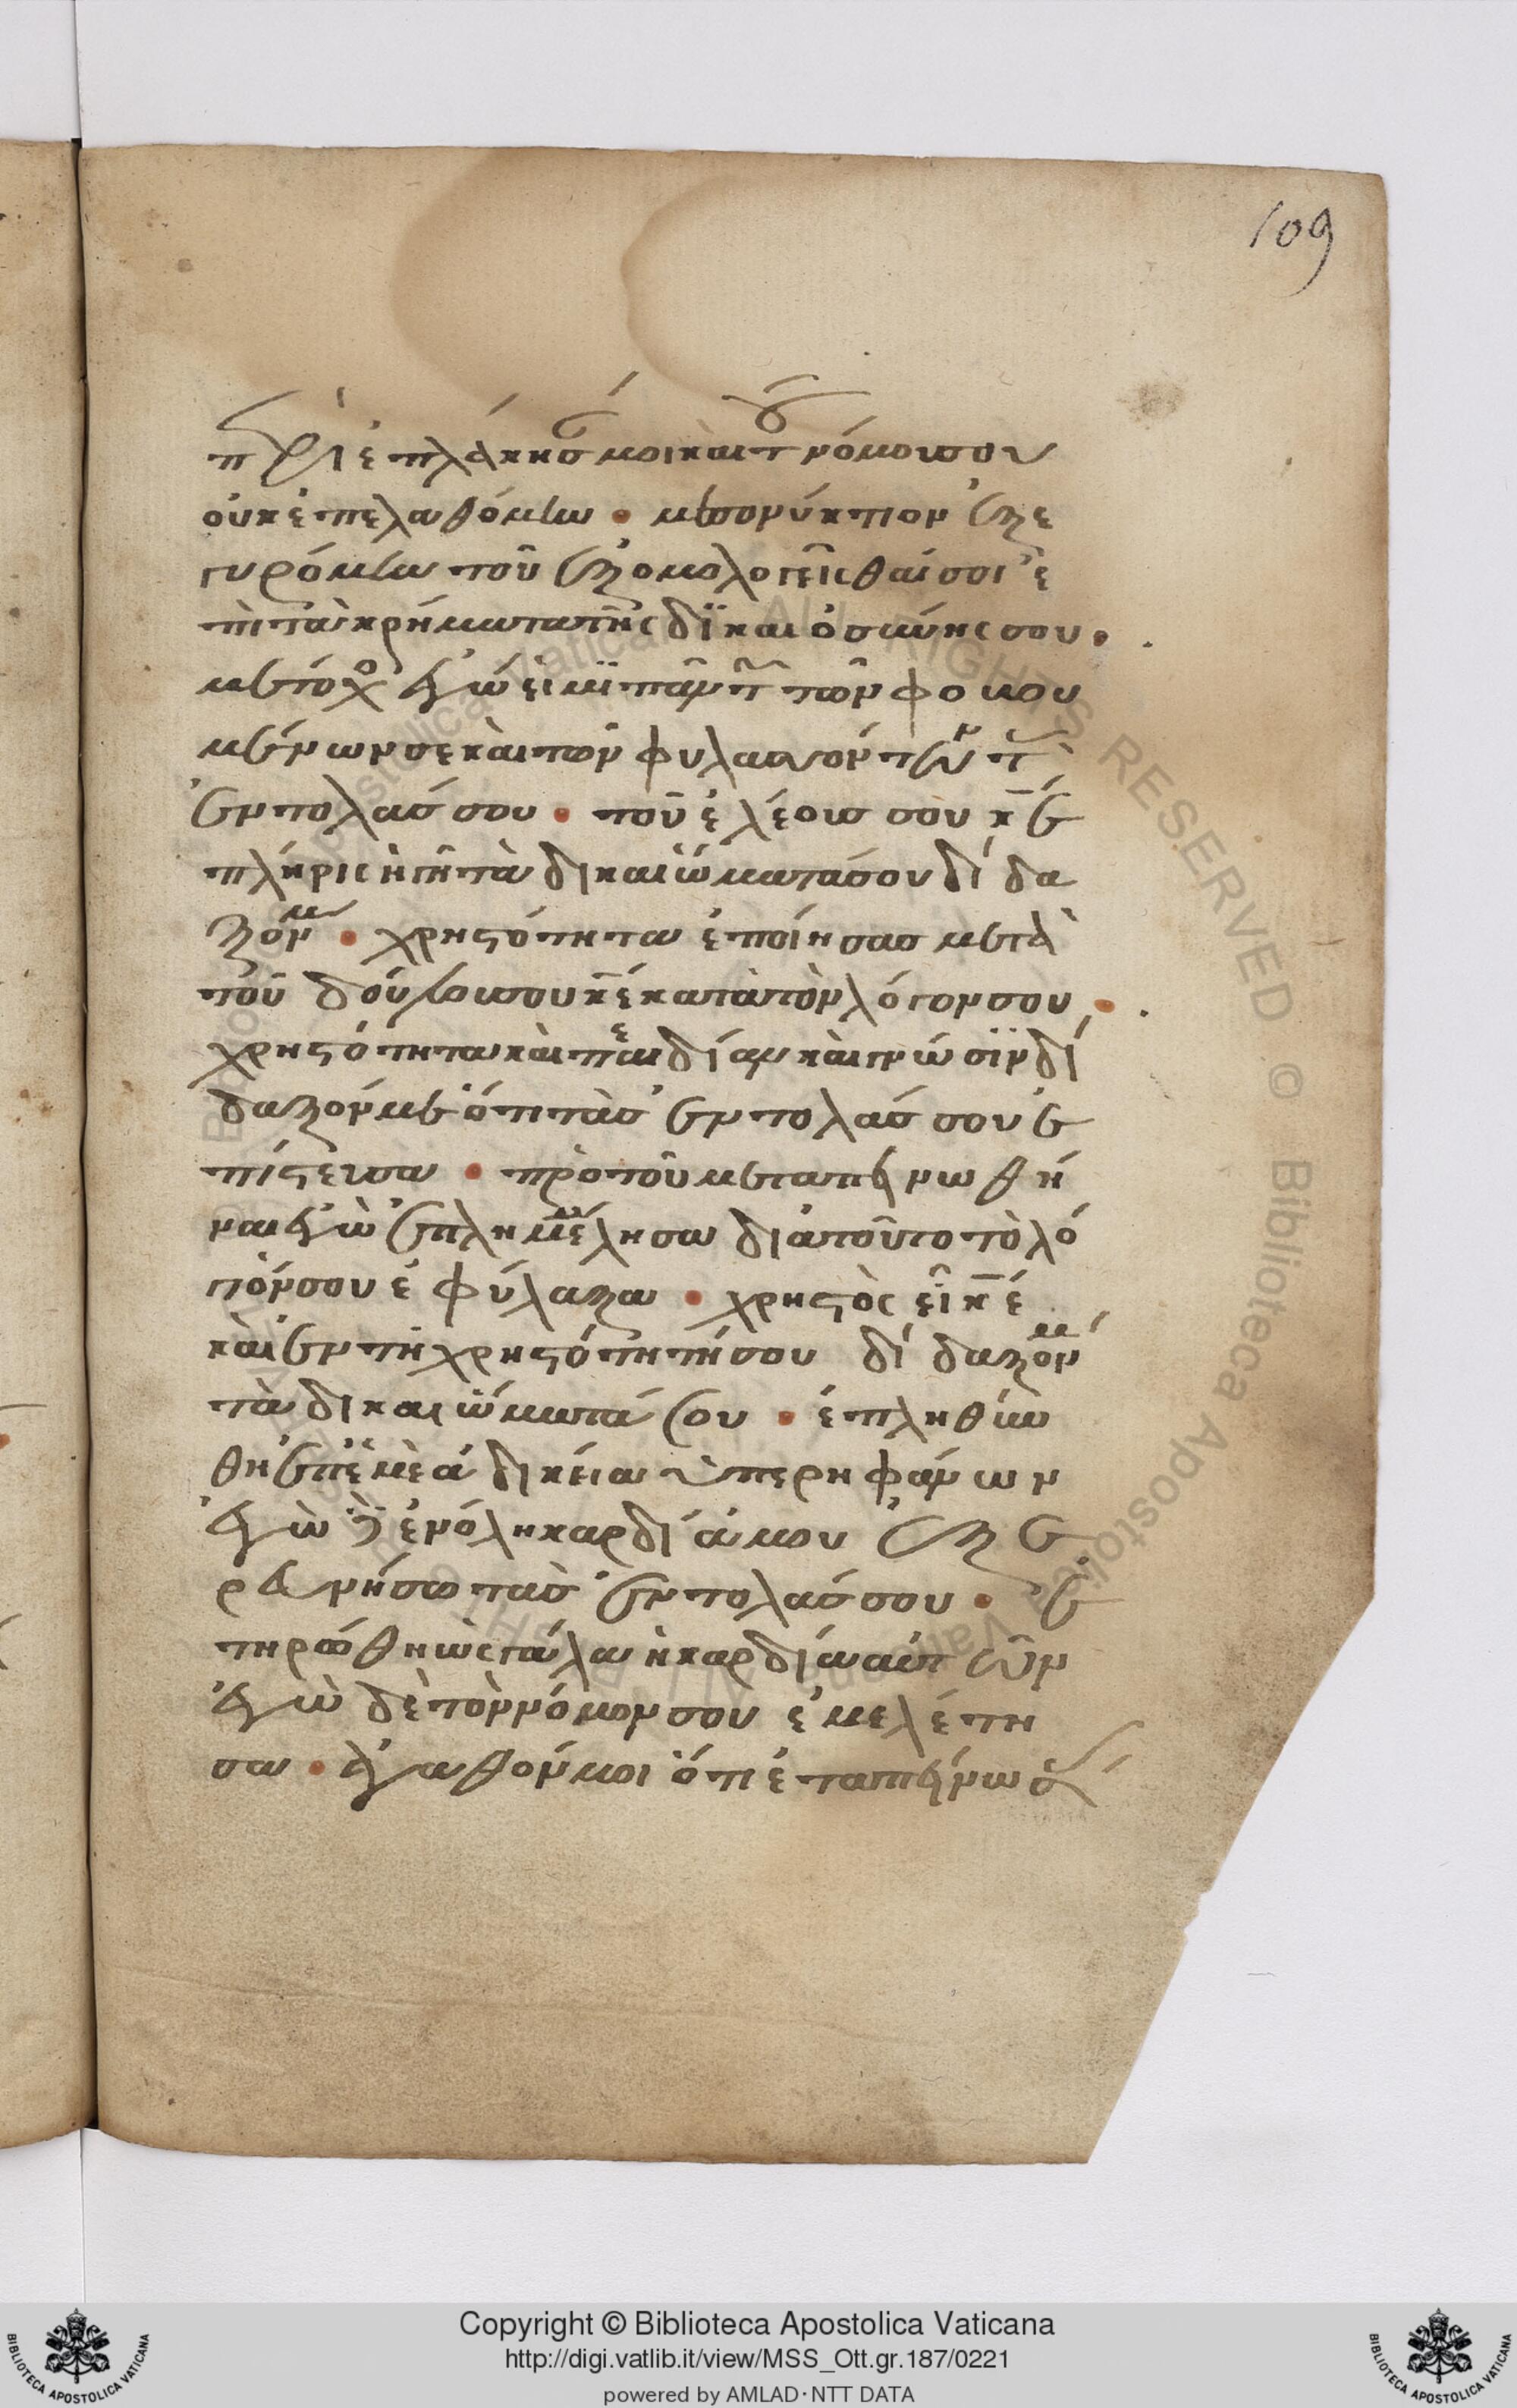 109
περιεπλάκησάν μοι καὶ τοῦ νόμου σου
οὐκ ἐπελαθόμην · μεσονύκτιον ἐξε
γυρόμην τοῦ ἐξομολογεῖσθαί σοι ἐ
πὶ τὰ κρήματα τῆς δϊκαιοσύνης σου ·
μέτοχος ἐγώ εἰμϊ πάντων τῶν φοβου
μένων σε καὶ τῶν φυλασσόντων τὰς
ἐντολάς σου · τοῦ ἐλέους σου κε ἐ
πλήρις ἡ γῆ τὰ δικαιώματά σου δίδα
ξόν με · χρηστότητα ἐποίησας μετὰ
τοῦ δούλου σου κε κατὰ τὸν λόγον σου ·
χρηστότητα καὶ παιδίαν καὶ γνώσϊν δί
δαξόν με ὅτι τὰς ἐντολάς σου ἐ
πίστευσα · πρὸ τοῦ με ταπεινωθῆ
ναι ἐγὼ ἐπλημμέλησα διὰ τοῦτο τὸ λό
γόν σου ἐφύλαξα · χρηστὸς εἶ κε
καὶ ἐν τῇ χρηστότητί σου δίδαξόν με
τὰ δικαιώματά σου · ἐπληθύν
θη ἐπ' ἐμὲ ἀδικεία ὑπερηφάνων
ἐγὼ δὲ ἐν ὅλη καρδία μου ἐξε
ρευνήσω τὰς ἐντολάς σου · ἐ
τηρώθη ὡς γάλα ἡ καρδία αὐτῶν
ἐγὼ δὲ τὸν νόμον σου ἐμελέτη
σα · ἀγαθόν μοι ὅτι ἐταπείνωσάς
Copyright © Biblioteca Apostolica Vaticana
http://digi.vatlib.it/view/MSS_Ott.gr.187/0221
powered by AMLAD·NTT DATA
BIBLIOTECA APOSTOLICA VATICANA
BIBLIOTECA APOSTOLICA VATICANA